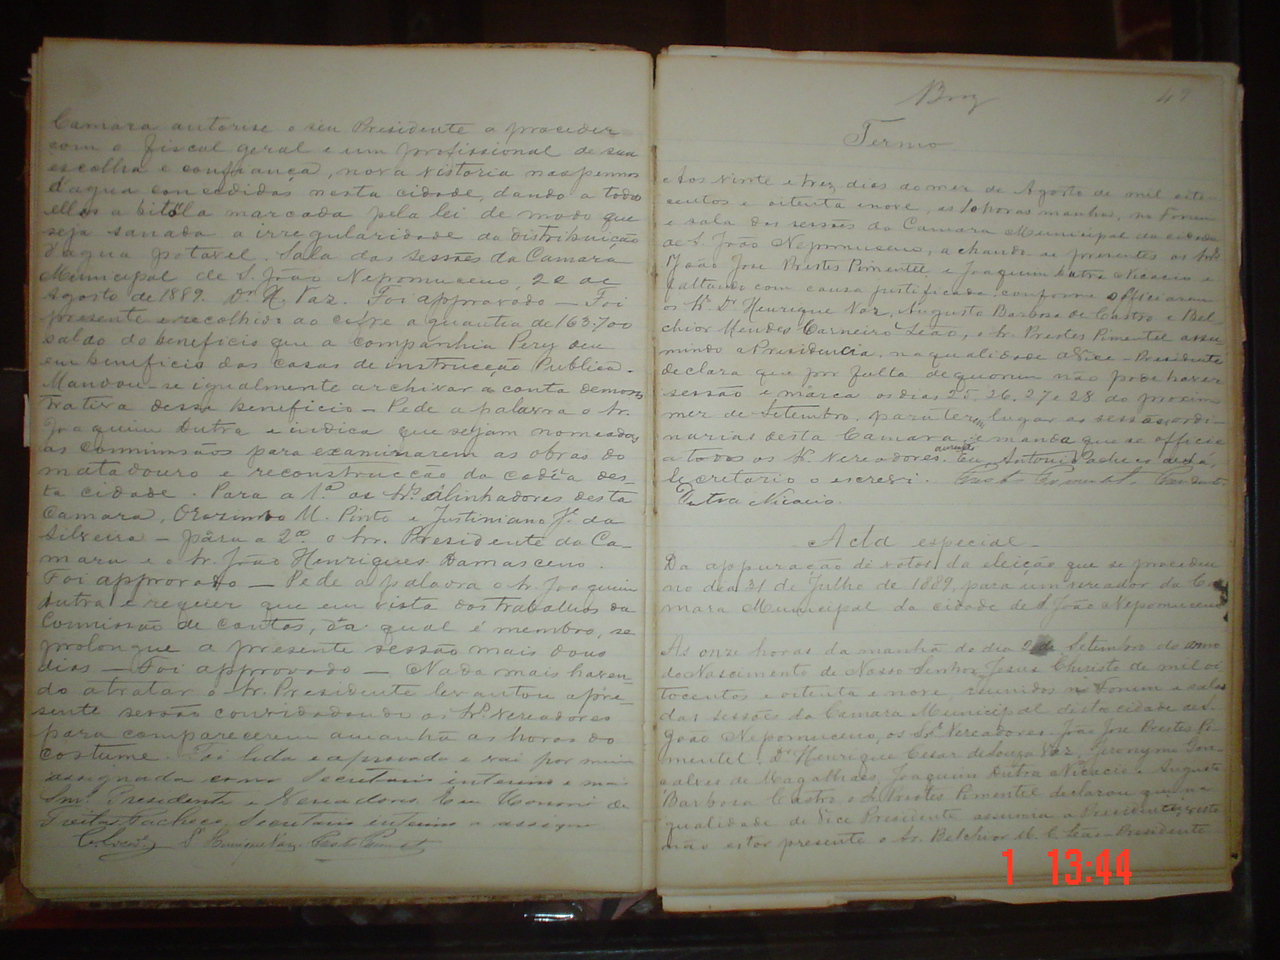 Camara autorise o seu Presidente a proceder
com o fiscal geral e um profissional de sua
escolha e confiança, nova vistoria nas pennas
d'agua concedidas nesta cidade, dando a todos
ellas a bitóla marcada pela lei de modo que
seja sanada a irregularidade da distribuição
d'agua potavel. Sala das sessões da Camara
Municipal de S. João Nepomuceno, 22 de
Agosto de 1889. Dr. H. Vaz. Foi approvado — Foi
presente e recolhido ao cofre a quantia de 163:700
saldo do beneficio que a companhia Pery deu
em beneficio das casas de instrucção Publica.
Mandou-se igualmente archivar a conta demons
trativa desse beneficio — Pede a palavra o Sr.
Joaquim Dutra e indica que sejam nomeados
as commissões para examinarem as obras do
matadouro e reconstrucção da cadêa des-
ta cidade. Para a 1ª os Srs. alinhadores desta
Camara, Orozimbo M. Pinto e Justiniano Je. da
Silveira — para a 2ª o Sr. Presidente da Ca-
mara e o Sr. João Henriques Damasceno.
Foi approvado — Pede a palavra o Sr. Joaquim
Dutra e requer que em vista dos trabalhos da
Commissão de contas, da qual é membro, se
prolongue a presente sessão mais dous
dias — Foi approvado — Nada mais haven-
do a tratar o Sr. Presidente levantou a pre-
sente sessão convidadando os Srs. Vereadores
para comparecerem amanhã as horas do
costume. Foi lida e aprovada e vai por mim
assignada como Secretario interino e mais
Snrs. Presidente e Vereadores. Eu
Freitas Pacheco, Secretario interino a assigno
Termo
Aos vinte e trez dias do mez de Agosto de mil oito-
centos e oitenta e nove, as 10 horas manhã, no Forum
e sala das sessões da Camara Municipal da cidade
de S. João Nepomuceno, achando-se presentes os Srs.
João José Prestes Pimentel e Joaquim Dutra Nicacio e
faltando com causa justificada conforme officiaram
os Srs. Dr. Henrique Vaz, Augusto Barbosa de Castro e Bel-
chior Mendes Carneiro Leão, o Sr. Prestes Pimentel assu
mindo a Presidencia, na qualidade de Vice-Presidente
declara que por falta de quorum não pode haver
sessão e marca os dias 25, 26, 27 e 28 do proximo
mez de Setembro para terem lugar as sessões ordi-
narias desta Camara e manda que se officie
a todos os Srs. Vereadores. Eu, Antonio Pacheco
Secretario o escrevi.
Dutra Nicacio.
Acta especial
Da appuração di votos da eleição que se procedeu
no dia 31 de Julho de 1889, para um vereador da Ca
mara Municipal da cidade de S. João Nepomuceno
As onze horas da manhã do dia de Setembro do anno
do Nascimento de Nosso Senhor Jesus Christo de mil oi
tocentos e oitenta e nove, reunidos no Forum e sala
das sessões da Camara Municipal desta cidade de S.
João Nepomuceno, os Srs. Vereadores João José Prestes Pi-
mentel, Dr. Henrique Cesar de Souza Vaz, Jeronymo Gon-
salves de Magalhães, Joaquim Dutra Nicacio e Augusto
Barbosa Castro, o Sr. Prestes Pimentel declarou que na
qualidade de Vice Presidente assumia a Presidencia visto
não estar presente o Sr. Belchior M. C. Leão Presidente
1 13:44